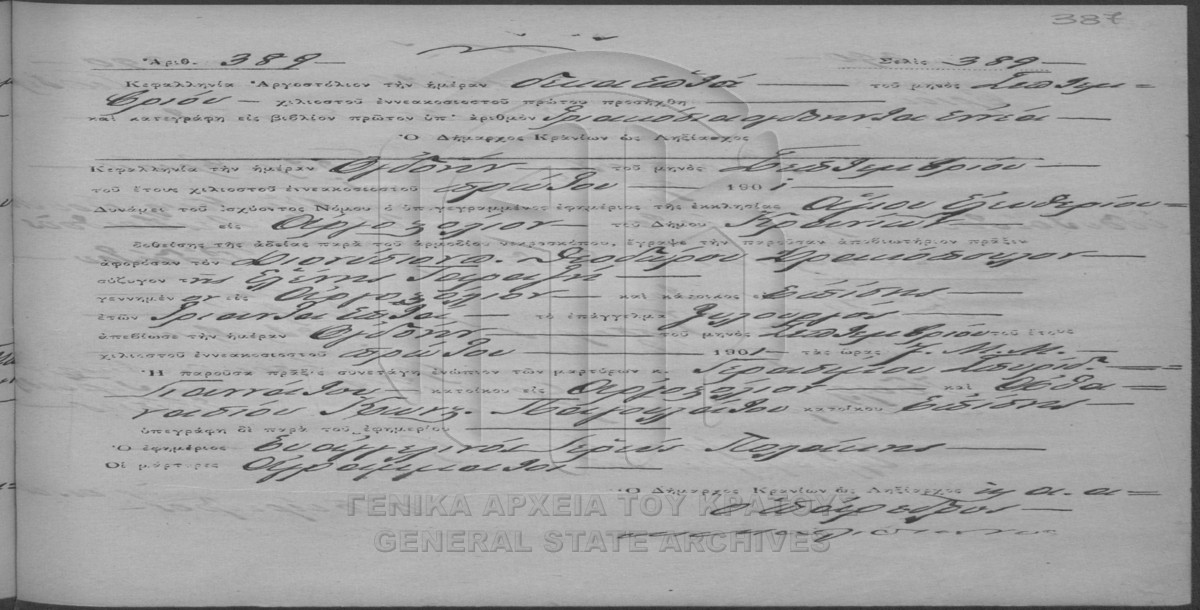 387
Ἀριθ. 389 Σελὶς 389
Κεφαλληνία Ἀργοστόλιον τὴν ἡμέραν δεκαεπτά τοῦ μηνὸς Σεπτεμ=
βρίου χιλιοστοῦ ἐννεακοσιοστοῦ πρώτου προσήχθη
καὶ κατεγράφη εἰς βιβλίον πρῶτον ὑπ' ἀριθμὸν τριακόσια ὀγδοήντα ἐννέα
Ὁ Δήμαρχος Κρανίων ὡς Ληξίαρχος
Κεφαλληνία τὴν ἡμέραν Ὀγδόην τοῦ μηνὸς Σεπτεμβρίου
τοῦ ἔτους χιλιοστοῦ ἐννεακοσιοστοῦ πρώτου 1901
Δυνάμει τοῦ ἰσχύοντος Νόμου ὁ ὑπογεγραμμένος ἐφημέριος τῆς ἐκκλησίας Ἁγίου Ἐλευθερίου=
εἰς Ἀργοστόλιον τοῦ Δήμου Κρανίων
δοθείσης τῆς ἀδείας παρὰ τοῦ ἁρμοδίου νεκροσκόπου, ἔγραψε τὴν παροῦσαν ἀποβιωτήριον πρᾶξιν
ἀφορῶσαν τὸν Διονύσιον Θεοδώρου
σύζυγον τῆς Ἑλένης
γεννημένον εἰς Ἀργοστόλιον καὶ κάτοικος εἰς Ἐπίσης
ἐτῶν Τριάντα ἑπτά τὸ ἐπάγγελμα Ξυλουργός
ἀπεβίωσε τὴν ἡμέραν Ὀγδόην τοῦ μηνὸς Σεπτεμβρίου τοῦ ἔτους
χιλιοστοῦ ἐννεακοσιοστοῦ πρώτου 1901 τὰς ὥρας 7. Μ.Μ.
Ἡ παροῦσα πρᾶξις συνετάγη ἐνώπιον τῶν μαρτύρων κ. Γερασίμου Σπυρίδ.
κατοίκου εἰς Ἀργοστόλιον καὶ Ἀθα=
νασίου κατοίκου Ἐπίσης
ὑπεγράφη δὲ παρὰ τοῦ ἐφημερίου
Ὁ ἐφημέριος Εὐάγγελινός Ἱερεύς
Οἱ μάρτυρες Ἀγράμματοι
Ὁ Δήμαρχος Κρανίων ὡς Ληξίαρχος
ΓΕΝΙΚΑ ΑΡΧΕΙΑ ΤΟΥ ΚΡΑΤΟΥΣ
GENERAL STATE ARCHIVES